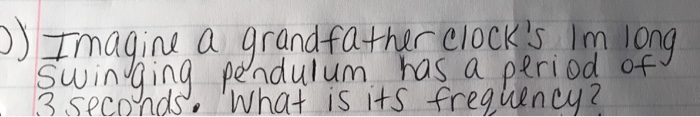 ) Imagine a grandfather clock's 1m long
swinging pendulum has a period of
3 seconds. What is its frequency?